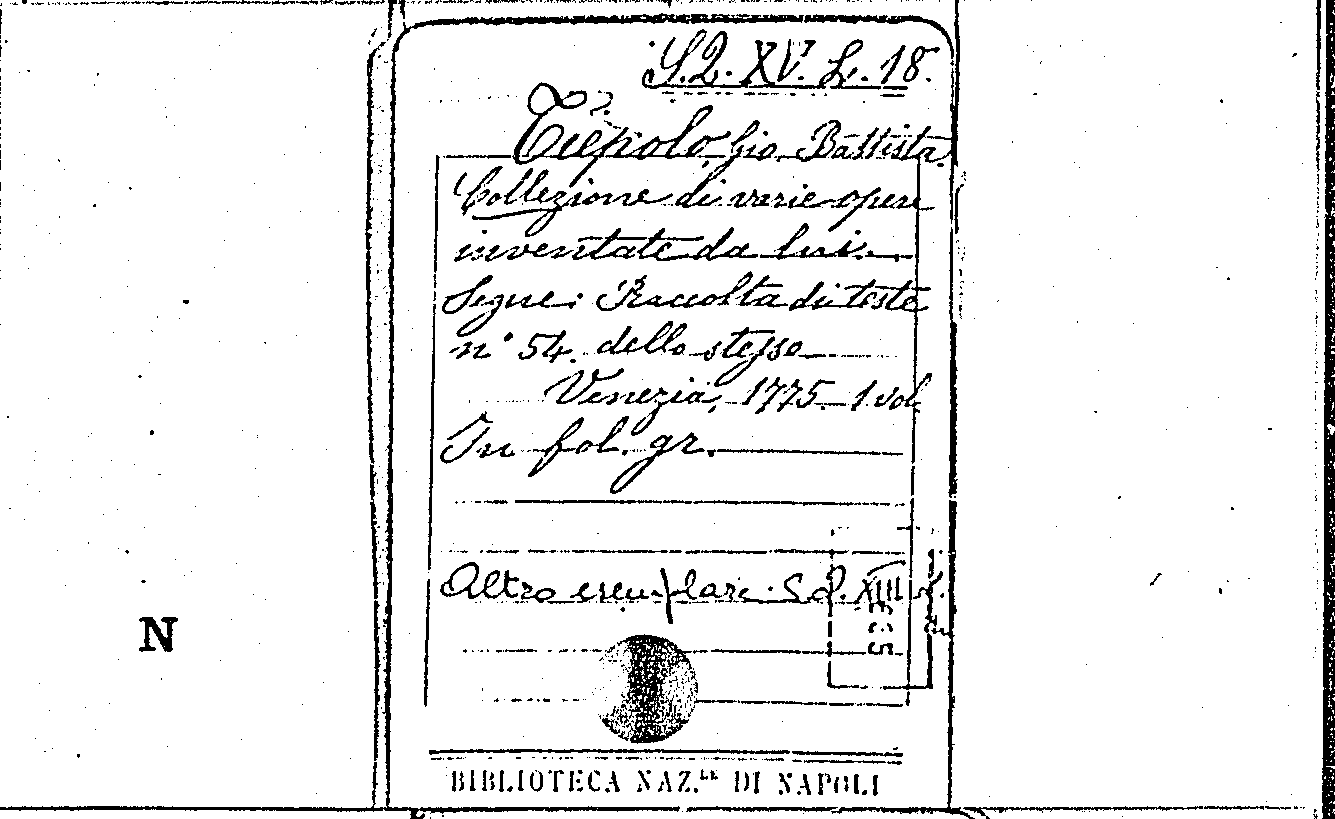 S.Q. XV. L. 18.
Tiepolo Gio. Battista.
Collezione di varie opere
inventate da lui.
Segue: Raccolta di teste
n° 54. dello stesso
Venezia, 1775. 1 vol.
In fol. gr.
Altro esemplare. S.Q. XIII
N
BIBLIOTECA NAZ.LE DI NAPOLI